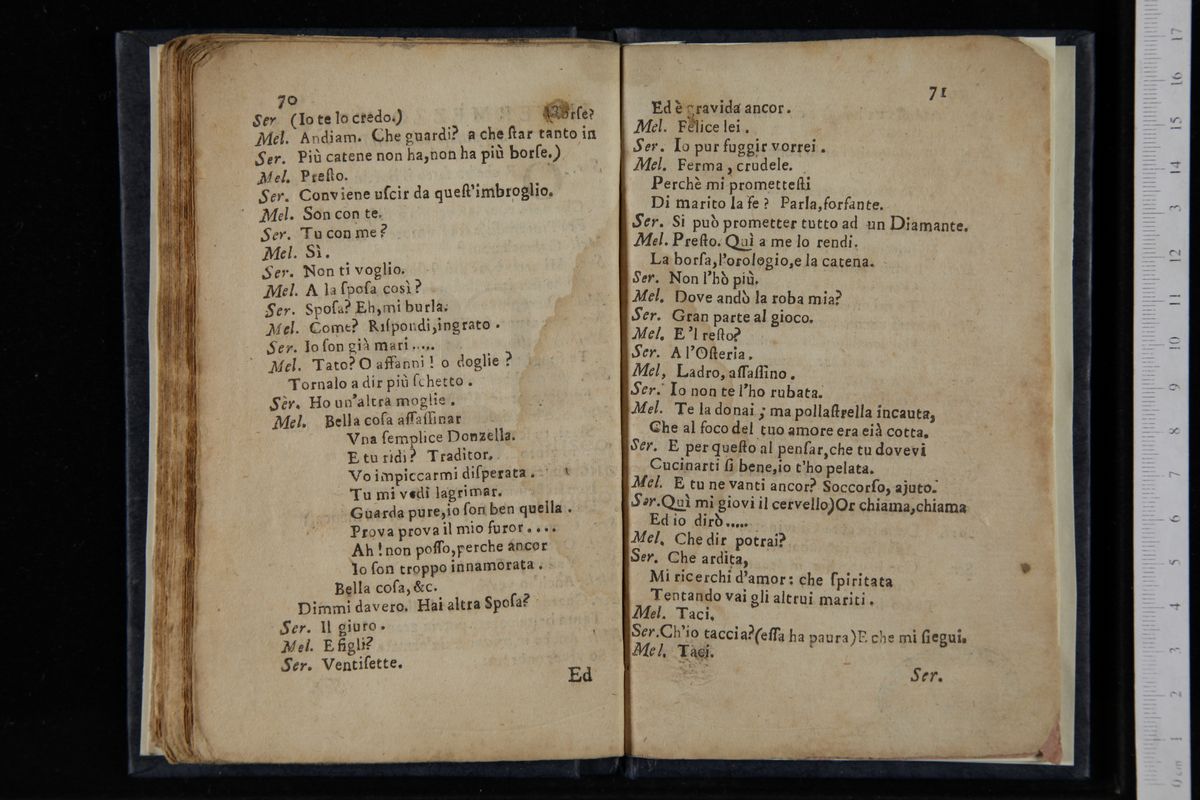 70
Ser (Io te lo credo.) (borse?
Mel. Andiam. Che guardi? a che ſtar tanto in
Ser. Più catene non ha,non ha più borſe.)
Mel. Preſto.
Ser. Conviene uſcir da queſt'imbroglio.
Mel. Son con te.
Ser. Tu con me?
Mel. Sì.
Ser. Non ti voglio.
Mel. A la ſpoſa così?
Ser. Spoſa? Eh,mi burla.
Mel. Come? Riſpondi,ingrato.
Ser. Io ſon già mari.....
Mel. Tato? O affanni! o doglie?
Tornalo a dir più ſchetto.
Sèr. Ho un'altra moglie.
Mel. Bella coſa aſſaſſinar
Vna ſemplice Donzella.
E tu ridi? Traditor.
Vo impiccarmi diſperata.
Tu mi vedi lagrimar.
Guarda pure,io ſon ben quella.
Prova prova il mio furor....
Ah! non poſſo,perche ancor
Io ſon troppo innamorata.
Bella coſa,&c.
Dimmi davero. Hai altra Spoſa?
Ser. Il giuro.
Mel. E figli?
Ser. Ventiſette.
Ed
71
Ed è gravida ancor.
Mel. Felice lei.
Ser. Io pur fuggir vorrei.
Mel. Ferma, crudele.
Perchè mi prometteſti
Di marito la fe? Parla,forfante.
Ser. Si può prometter tutto ad un Diamante.
Mel. Preſto. Quì a me lo rendi.
La borſa,l'orologio,e la catena.
Ser. Non l'hò più.
Mel. Dove andò la roba mia?
Ser. Gran parte al gioco.
Mel. E'l reſto?
Ser. A l'Oſteria.
Mel, Ladro, aſſaſſino.
Ser. Io non te l'ho rubata.
Mel. Te la donai; ma pollaſtrella incauta,
Che al foco del tuo amore era eià cotta.
Ser. E per queſto al penſar,che tu dovevi
Cucinarti ſi bene,io t'ho pelata.
Mel. E tu ne vanti ancor? Soccorſo, ajuto.
Ser.Quì mi giovi il cervello)Or chiama,chiama
Ed io dirò.....
Mel. Che dir potrai?
Ser. Che ardita,
Mi ricerchi d'amor: che ſpiritata
Tentando vai gli altrui mariti.
Mel. Taci.
Ser.Ch'io taccia?(eſſa ha paura)E che mi ſiegui.
Mel. Taci.
Ser.